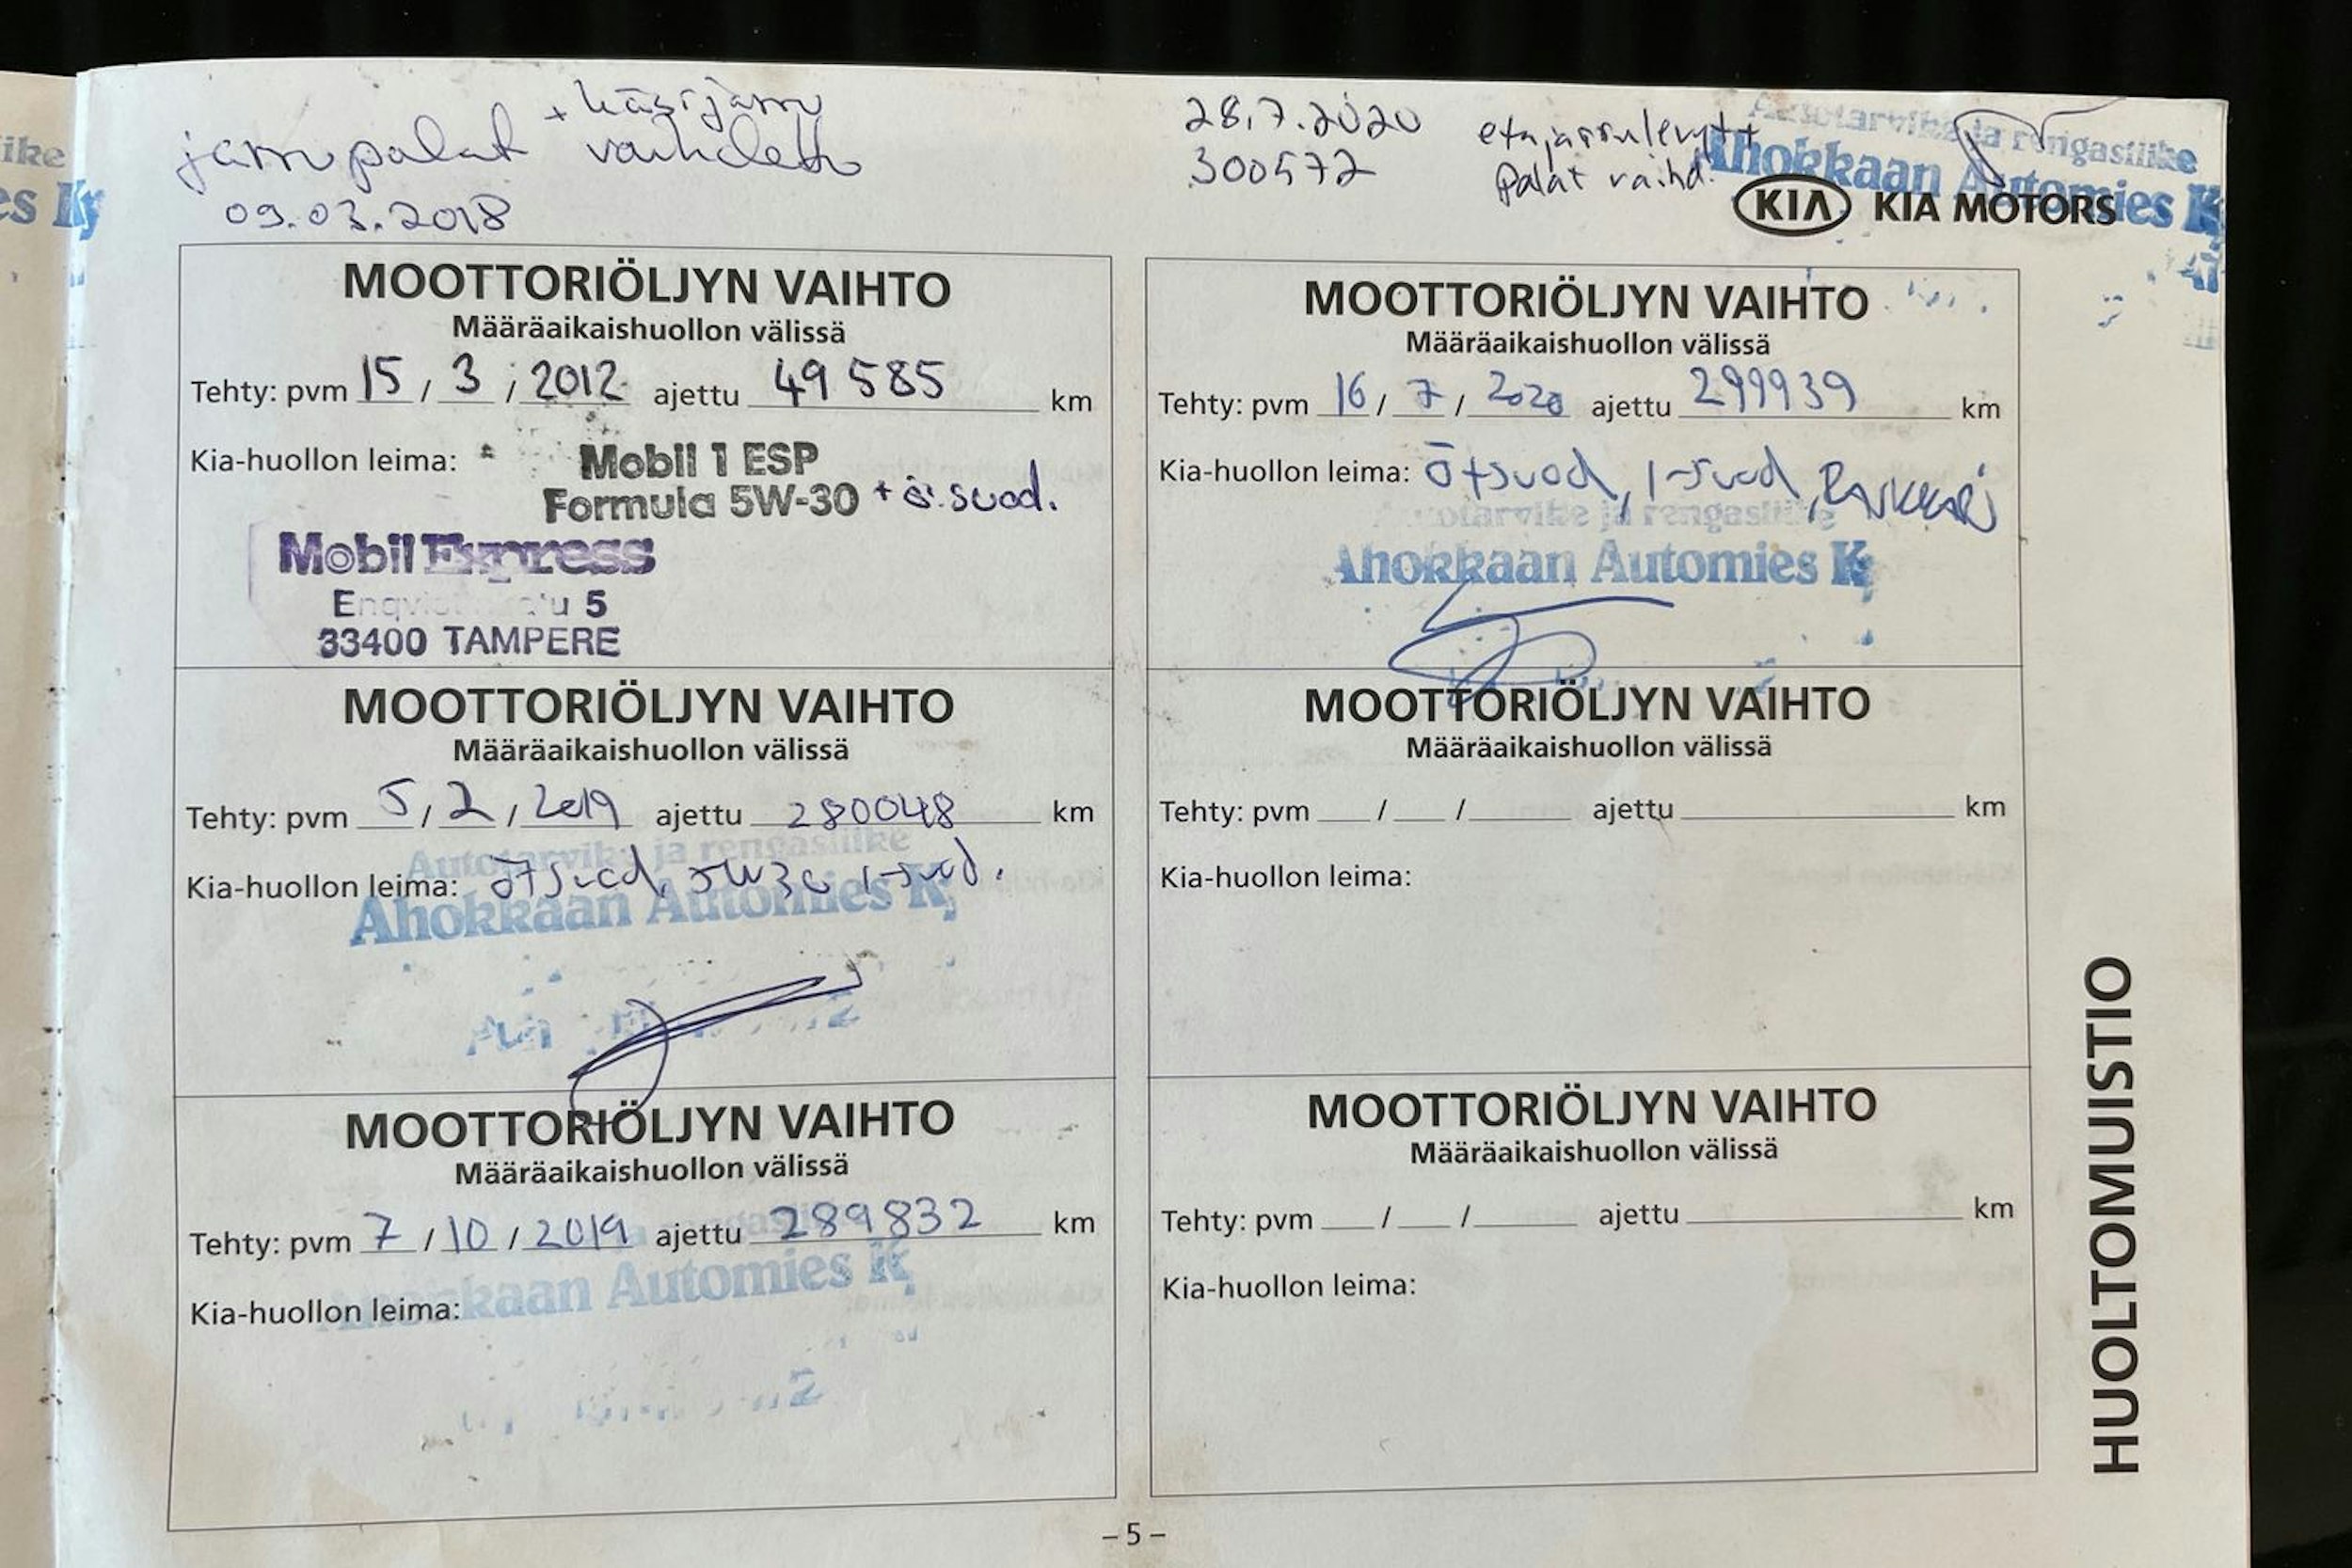 ike
es Ky
jarrupalat + käsijarru
vaihdettu
09.03.2018
28.7.2020
300572
etujarrulevyt +
palat vaihd.
Autotarvike ja rengasliike
Ahokkaan Automies Ky
KIA KIA MOTORS
MOOTTORIÖLJYN VAIHTO
Määräaikaishuollon välissä
Tehty: pvm 15 / 3 / 2012 ajettu 49 585 km
Kia-huollon leima:
Mobil 1 ESP
Formula 5W-30 + ö.suod.
Mobil Express
5
33400 TAMPERE
MOOTTORIÖLJYN VAIHTO
Määräaikaishuollon välissä
Tehty: pvm 5 / 2 / 2019 ajettu 280048 km
Autotarvike ja rengasliike
Kia-huollon leima: ö+suod, 5W30 i-suod.
Ahokkaan Automies Ky
MOOTTORIÖLJYN VAIHTO
Määräaikaishuollon välissä
Tehty: pvm 7 / 10 / 2019 ajettu 289832 km
Ahokkaan Automies Ky
Kia-huollon leima:
MOOTTORIÖLJYN VAIHTO
Määräaikaishuollon välissä
Tehty: pvm 16 / 7 / 2020 ajettu 299939 km
Kia-huollon leima: ö+suod, i-suod,
Autotarvike ja rengasliike
Ahokkaan Automies Ky
MOOTTORIÖLJYN VAIHTO
Määräaikaishuollon välissä
Tehty: pvm ___ / ___ / ______ ajettu ______________ km
Kia-huollon leima:
MOOTTORIÖLJYN VAIHTO
Määräaikaishuollon välissä
Tehty: pvm ___ / ___ / ______ ajettu ______________ km
Kia-huollon leima:
HUOLTOMUISTIO
– 5 –